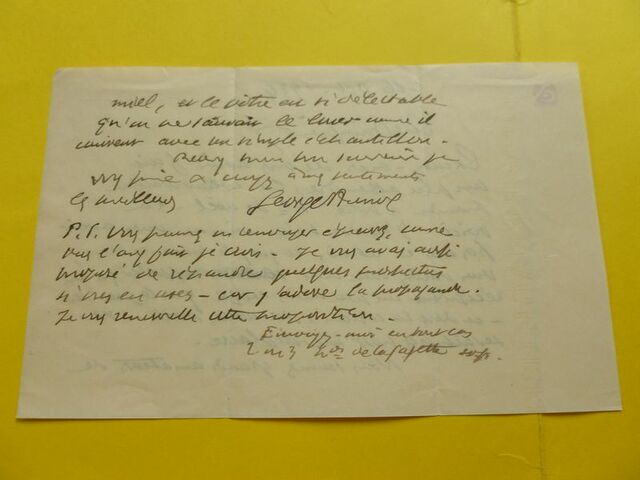 miel, et le vôtre est si délectable
qu'on ne saurait le louer comme il
convient avec un simple échantillon.
mon bon souvenir je
vous prie à mes sentiments
les meilleurs
George
P.S. Vous pouvez m'envoyer comme
vous l'avez fait je crois. Je vous avais aussi
proposé de répandre quelques prospectus
si vous en avez - car j'adore la propagande.
Je vous renouvelle cette proposition.
Envoyez-moi en tout cas
2 ou 3 nos de la gazette